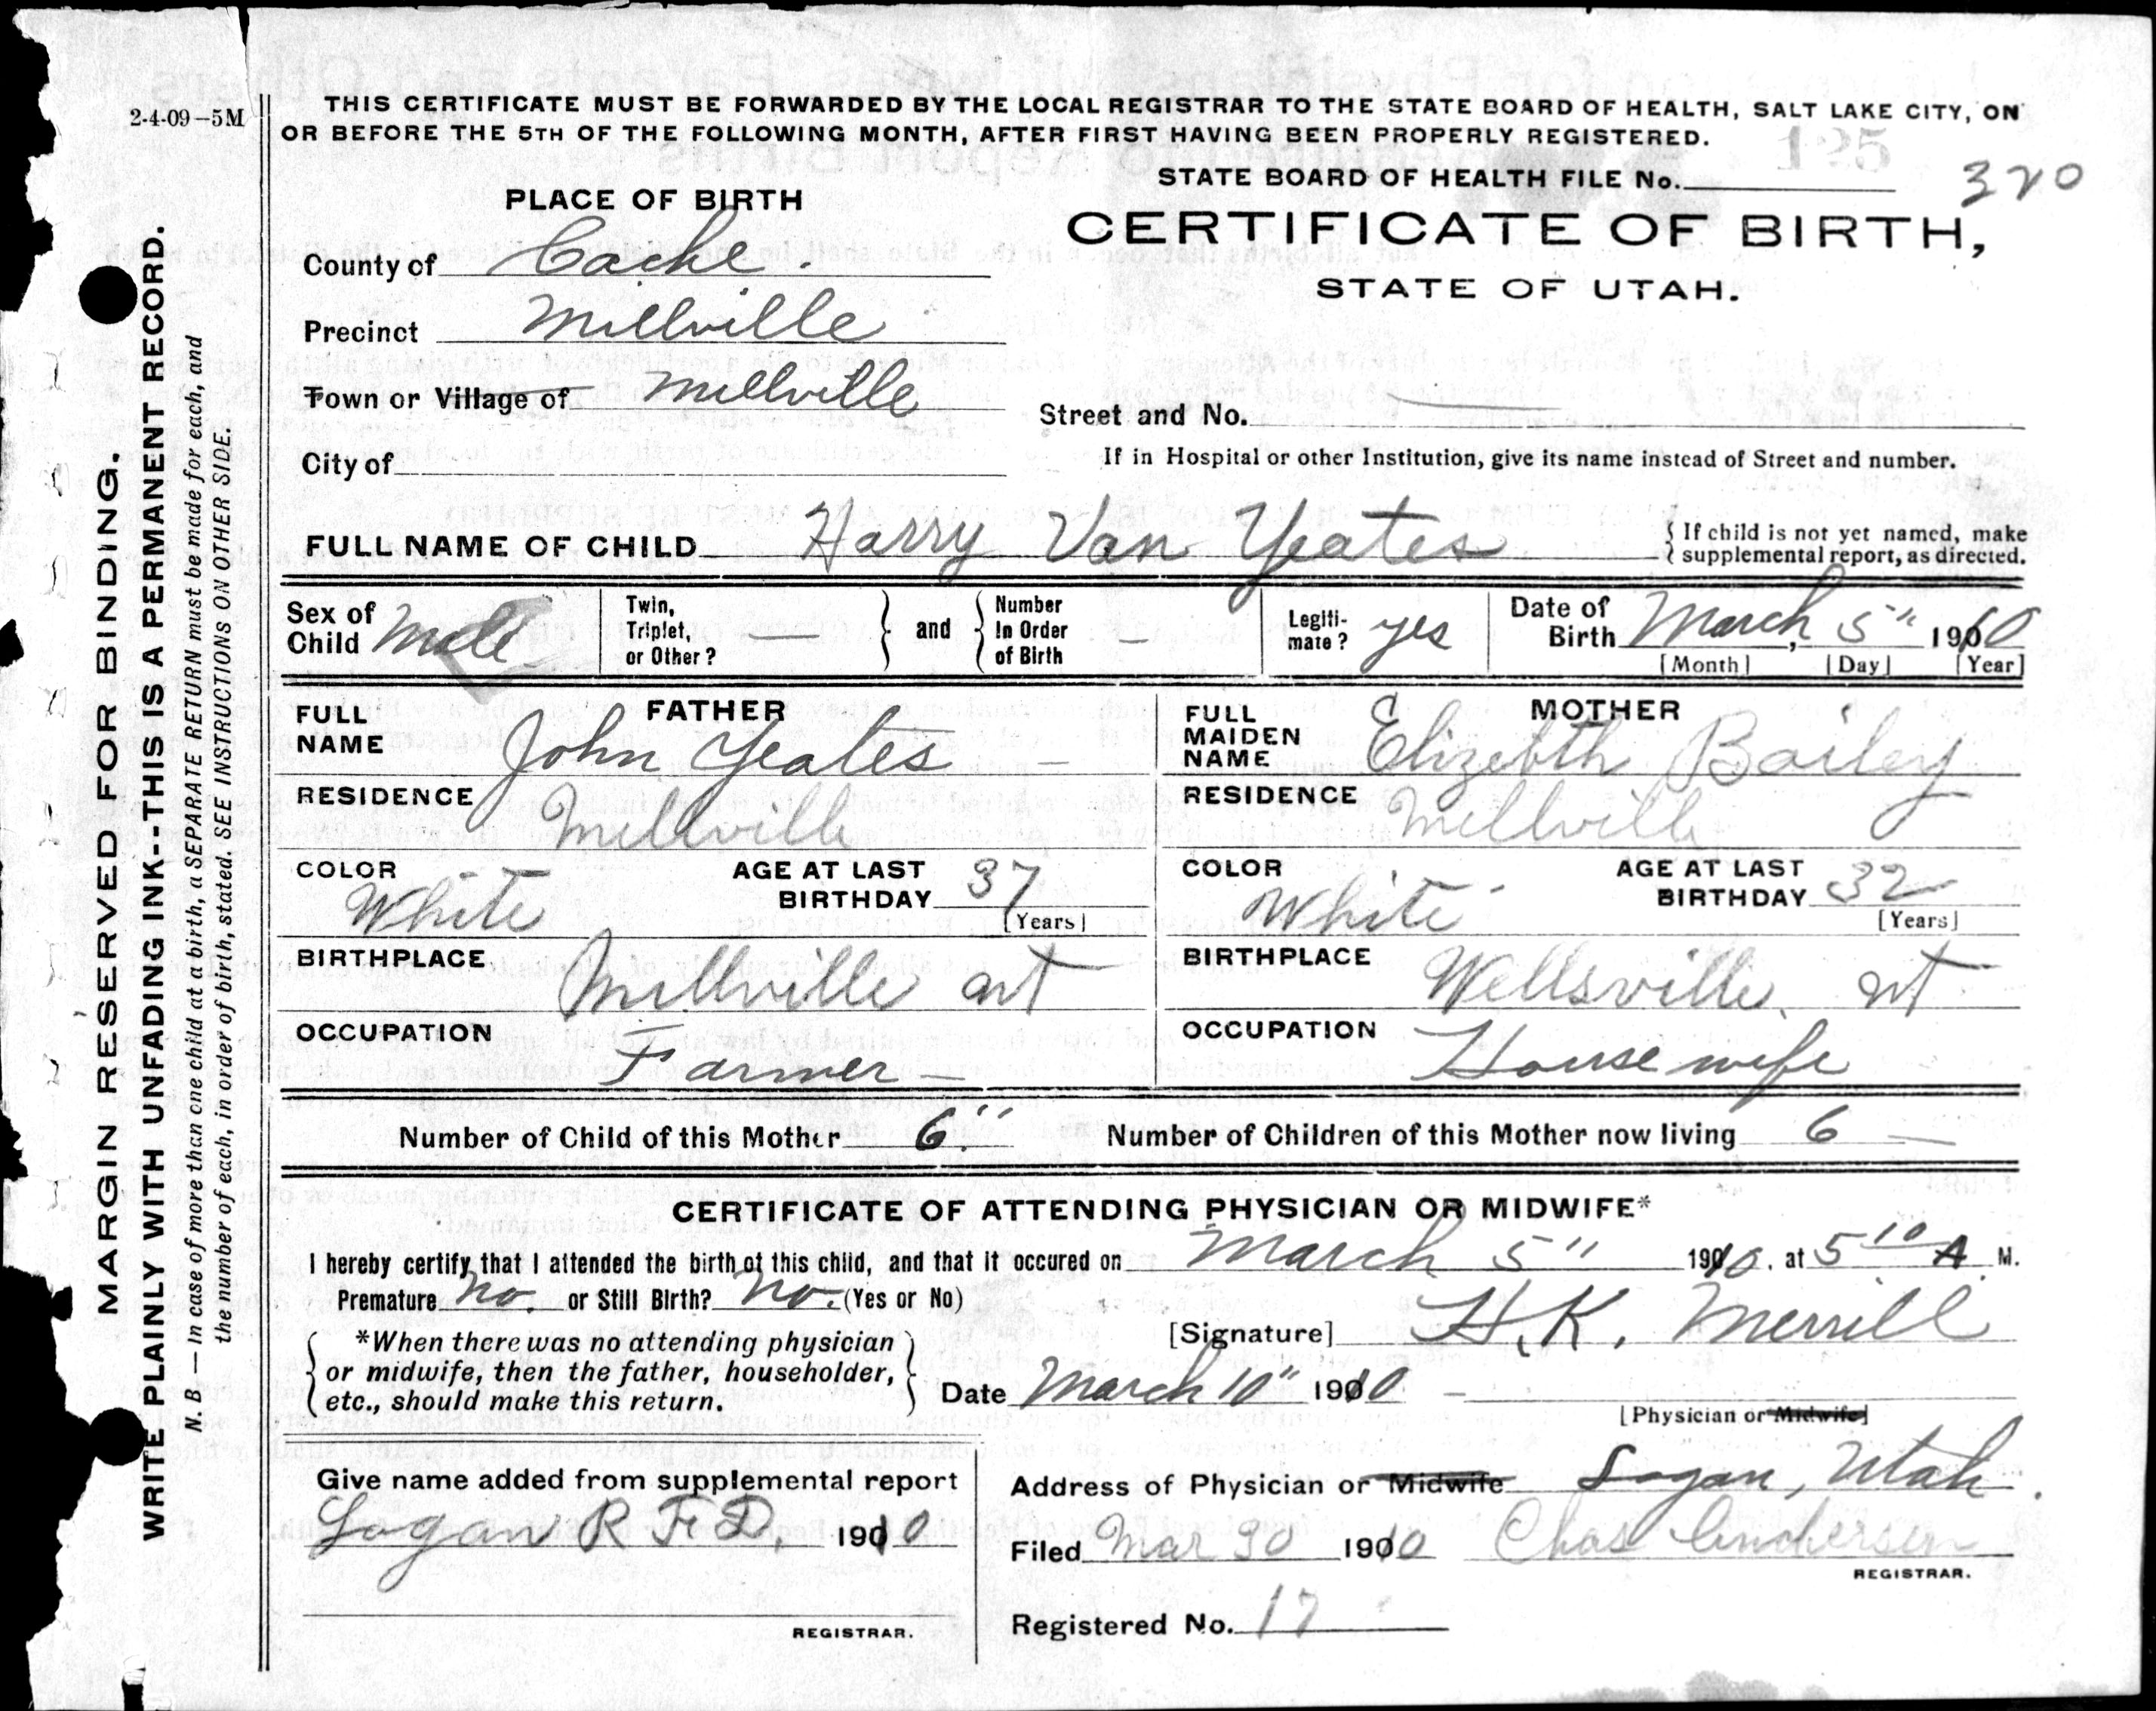 2-4-09-5M
THIS CERTIFICATE MUST BE FORWARDED BY THE LOCAL REGISTRAR TO THE STATE BOARD OF HEALTH, SALT LAKE CITY, ON
OR BEFORE THE 5TH OF THE FOLLOWING MONTH, AFTER FIRST HAVING BEEN PROPERLY REGISTERED.
125
STATE BOARD OF HEALTH FILE No. 320
PLACE OF BIRTH
CERTIFICATE OF BIRTH,
STATE OF UTAH.
County of Cache.
Precinct Millville
Town or Village of Millville
Street and No.
City of
If in Hospital or other Institution, give its name instead of Street and number.
FULL NAME OF CHILD Harry Van Yeates
{ If child is not yet named, make
{ supplemental report, as directed.
Sex of Child Male
Twin, Triplet, or Other? —
and
Number In Order of Birth —
Legitimate? yes
Date of Birth March 5" 1910
[Month] [Day] [Year]
FATHER
FULL NAME John Yeates
RESIDENCE Millville
COLOR White
AGE AT LAST BIRTHDAY 37
[Years]
BIRTHPLACE Millville ut
OCCUPATION Farmer
MOTHER
FULL MAIDEN NAME Elizebth Bailey
RESIDENCE Millville
COLOR White
AGE AT LAST BIRTHDAY 32
[Years]
BIRTHPLACE Wellsville, ut
OCCUPATION House wife
Number of Child of this Mother 6"
Number of Children of this Mother now living 6
CERTIFICATE OF ATTENDING PHYSICIAN OR MIDWIFE*
I hereby certify that I attended the birth of this child, and that it occured on March 5" 1910, at 5 10 A M.
Premature no. or Still Birth? no. (Yes or No)
*When there was no attending physician
or midwife, then the father, householder,
etc., should make this return.
[Signature] H. K. Merrill
Date March 10" 1910
[Physician or Midwife]
Give name added from supplemental report
Logan R F D, 1910
REGISTRAR.
Address of Physician or Midwife Logan, Utah.
Filed Mar 30 1910 Chas Andersen
REGISTRAR.
Registered No. 17
MARGIN RESERVED FOR BINDING.
WRITE PLAINLY WITH UNFADING INK--THIS IS A PERMANENT RECORD.
N. B.—In case of more than one child at a birth, a SEPARATE RETURN must be made for each, and
the number of each, in order of birth, stated. SEE INSTRUCTIONS ON OTHER SIDE.